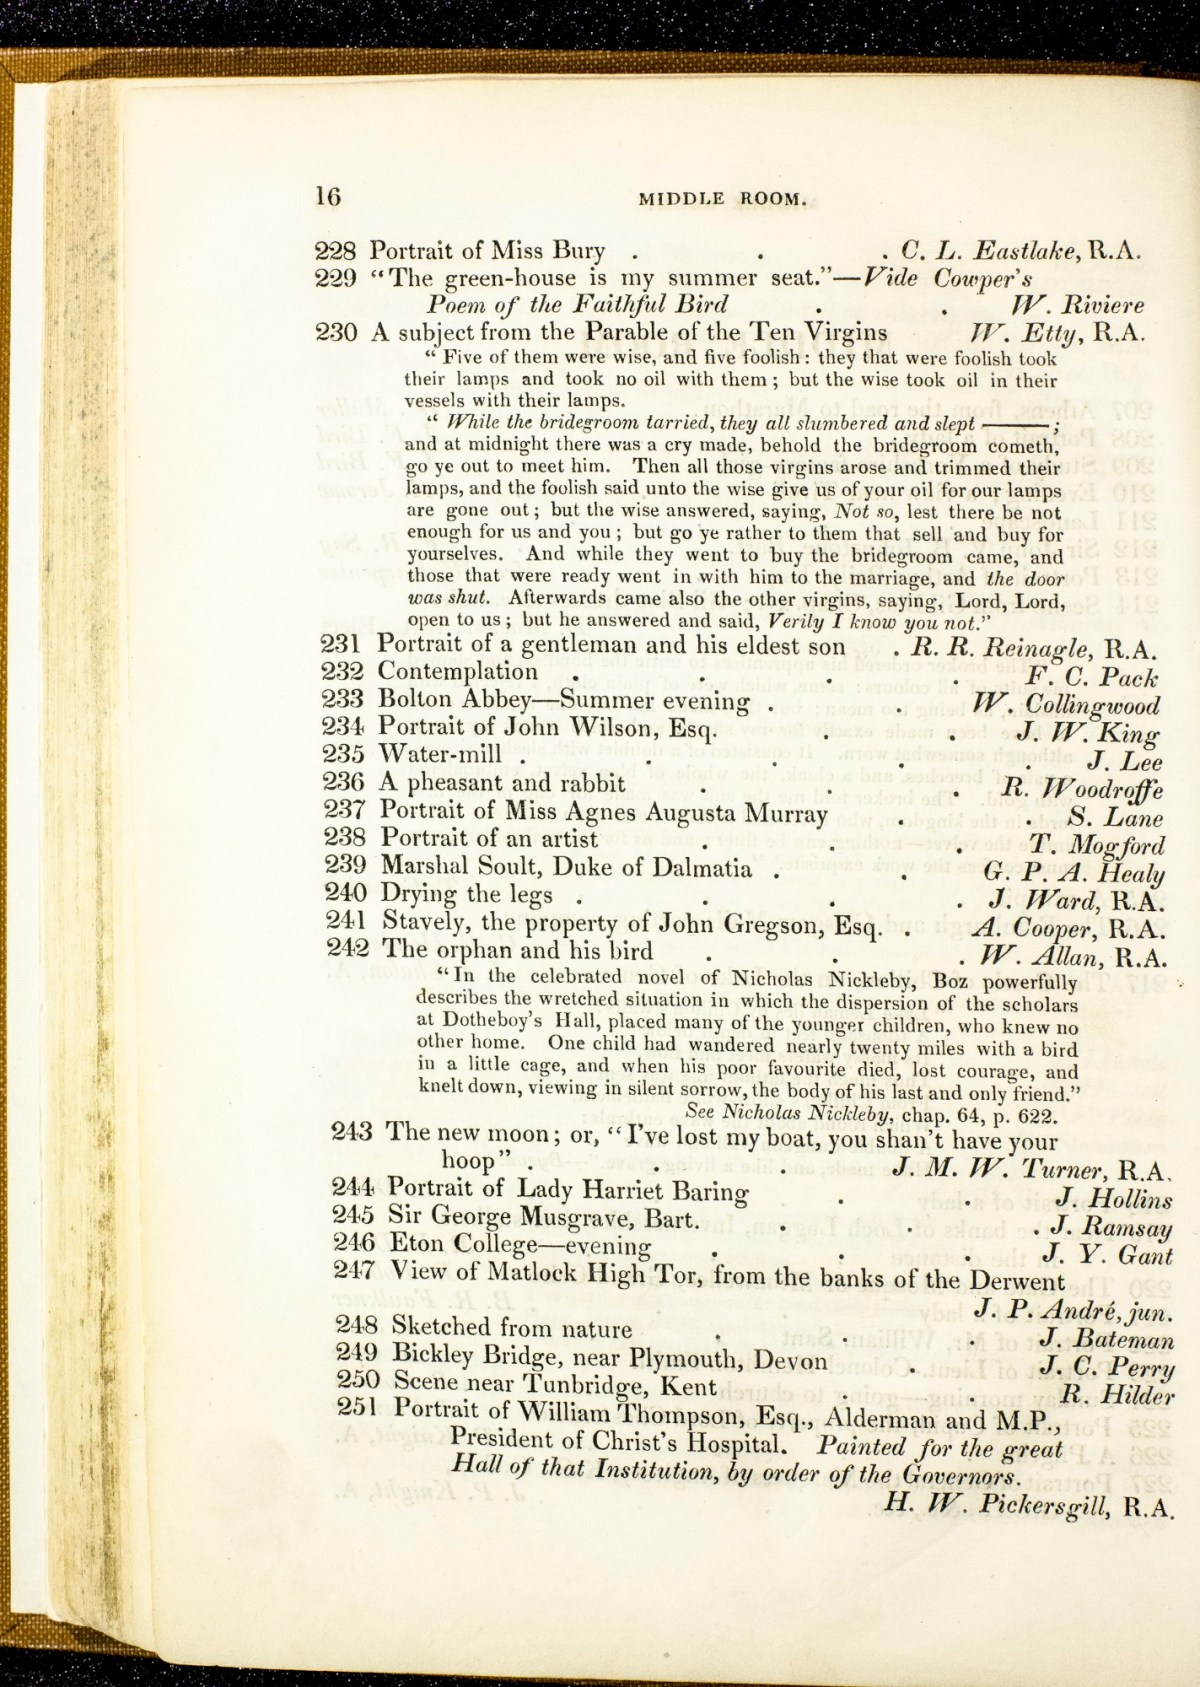 16 MIDDLE ROOM.
228 Portrait of Miss Bury . . . C. L. Eastlake, R.A.
229 “The green-house is my summer seat.”—Vide Cowper's
Poem of the Faithful Bird . . W. Riviere
230 A subject from the Parable of the Ten Virgins W. Etty, R.A.
“ Five of them were wise, and five foolish : they that were foolish took
their lamps and took no oil with them ; but the wise took oil in their
vessels with their lamps.
“ While the bridegroom tarried, they all slumbered and slept ——— ;
and at midnight there was a cry made, behold the bridegroom cometh,
go ye out to meet him. Then all those virgins arose and trimmed their
lamps, and the foolish said unto the wise give us of your oil for our lamps
are gone out ; but the wise answered, saying, Not so, lest there be not
enough for us and you ; but go ye rather to them that sell and buy for
yourselves. And while they went to buy the bridegroom came, and
those that were ready went in with him to the marriage, and the door
was shut. Afterwards came also the other virgins, saying, Lord, Lord,
open to us ; but he answered and said, Verily I know you not.”
231 Portrait of a gentleman and his eldest son . R. R. Reinagle, R.A.
232 Contemplation . . . . F. C. Pack
233 Bolton Abbey—Summer evening . . W. Collingwood
234 Portrait of John Wilson, Esq. . . J. W. King
235 Water-mill . . . . . J. Lee
236 A pheasant and rabbit . . . R. Woodroffe
237 Portrait of Miss Agnes Augusta Murray . . S. Lane
238 Portrait of an artist . . . T. Mogford
239 Marshal Soult, Duke of Dalmatia . . G. P. A. Healy
240 Drying the legs . . . . J. Ward, R.A.
241 Stavely, the property of John Gregson, Esq. . A. Cooper, R.A.
242 The orphan and his bird . . . W. Allan, R.A.
“In the celebrated novel of Nicholas Nickleby, Boz powerfully
describes the wretched situation in which the dispersion of the scholars
at Dotheboy's Hall, placed many of the younger children, who knew no
other home. One child had wandered nearly twenty miles with a bird
in a little cage, and when his poor favourite died, lost courage, and
knelt down, viewing in silent sorrow, the body of his last and only friend.”
See Nicholas Nickleby, chap. 64, p. 622.
243 The new moon ; or, “I've lost my boat, you shan't have your
hoop” . . . J. M. W. Turner, R.A.
244 Portrait of Lady Harriet Baring . . J. Hollins
245 Sir George Musgrave, Bart. . . . J. Ramsay
246 Eton College—evening . . . J. Y. Gant
247 View of Matlock High Tor, from the banks of the Derwent
J. P. André, jun.
248 Sketched from nature . . . J. Bateman
249 Bickley Bridge, near Plymouth, Devon . J. C. Perry
250 Scene near Tunbridge, Kent . . R. Hilder
251 Portrait of William Thompson, Esq., Alderman and M.P.,
President of Christ's Hospital. Painted for the great
Hall of that Institution, by order of the Governors.
H. W. Pickersgill, R.A.